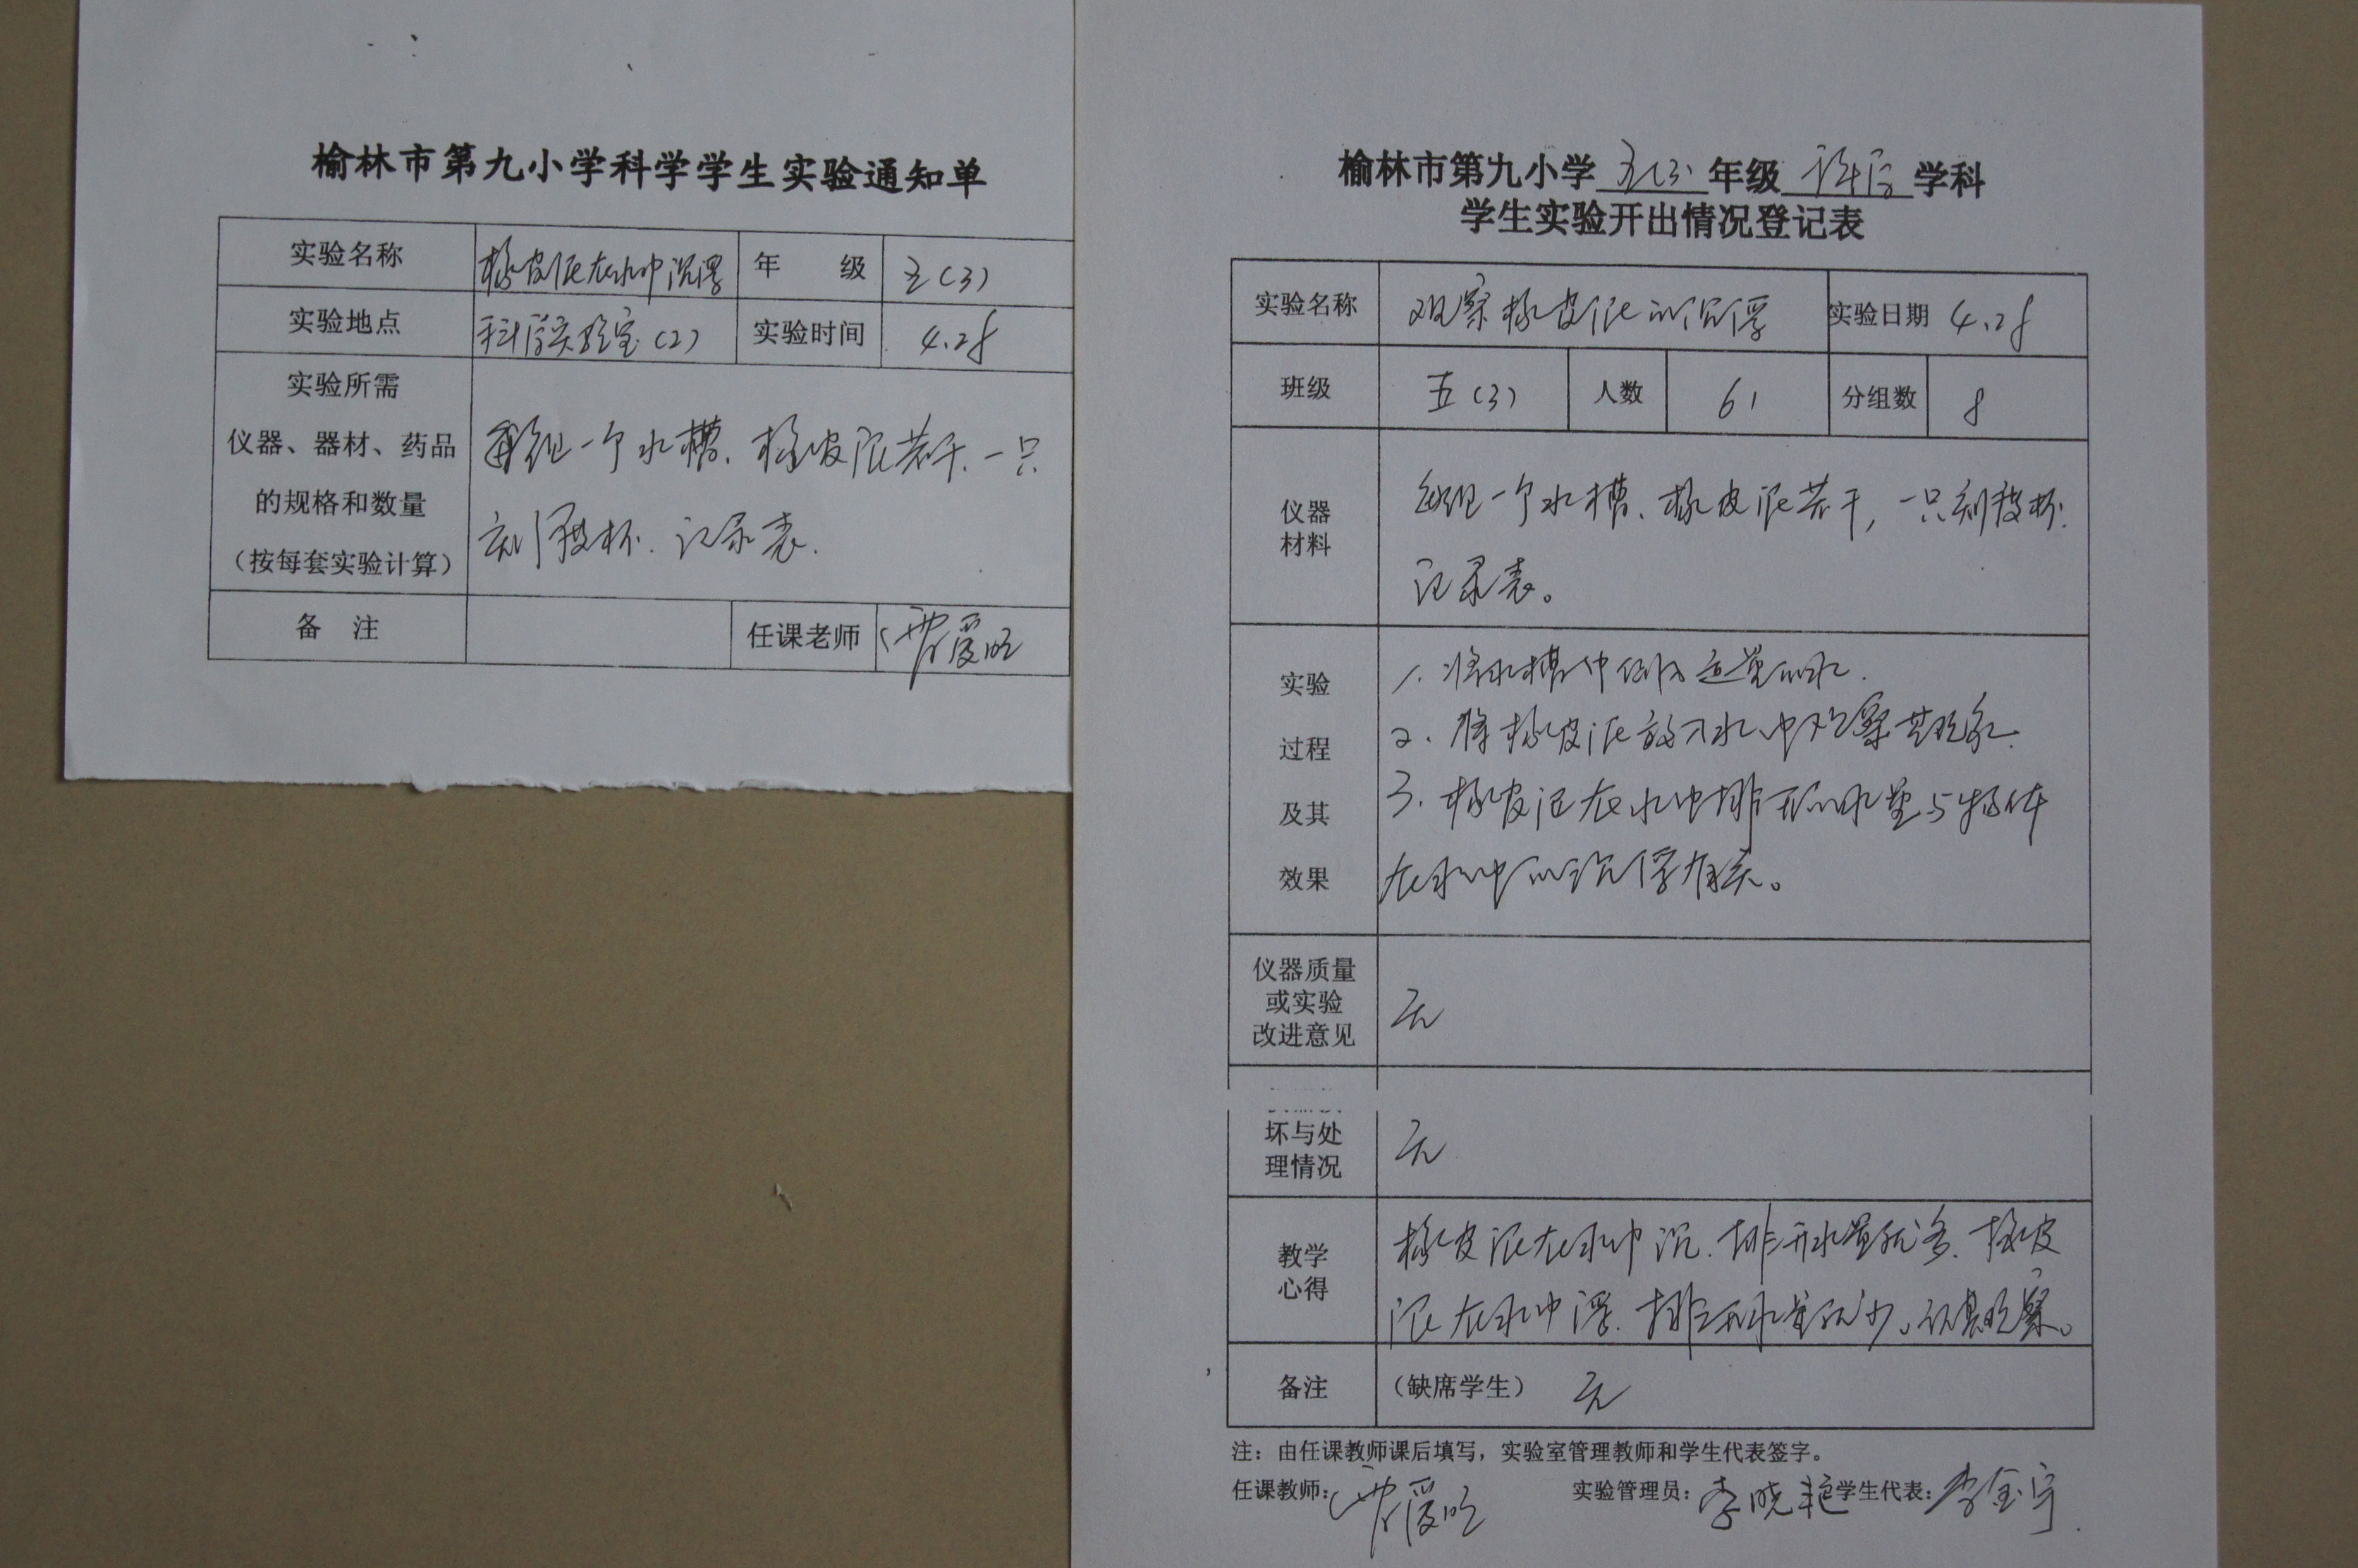 榆林市第九小学科学学生实验通知单
实验名称 橡皮泥在水中沉浮 年 级 五(3)
实验地点 科学实验室(2) 实验时间 4.28
实验所需
仪器、器材、药品
的规格和数量
(按每套实验计算)
每组一个水槽、橡皮泥若干、一只
刻度杯、记录表.
备 注 任课老师
榆林市第九小学 五(3) 年级 科学 学科
学生实验开出情况登记表
实验名称 观察橡皮泥的沉浮 实验日期 4.28
班级 五(3) 人数 61 分组数 8
仪器
材料
每组一个水槽、橡皮泥若干,一只刻度杯.
记录表。
实验
过程
及其
效果
1. 将水槽中倒入适量的水.
2. 将橡皮泥放入水中观察其现象.
3. 橡皮泥在水中排开的水量与物体
在水中的沉浮有关。
仪器质量
或实验
改进意见
无
坏与处
理情况
无
教学
心得
橡皮泥在水中沉.排开水量就多.橡皮
泥在水中浮.排开水量就少。认真观察。
备注 (缺席学生) 无
注:由任课教师课后填写,实验室管理教师和学生代表签字。
任课教师: 实验管理员:李晓艳 学生代表:李金宇